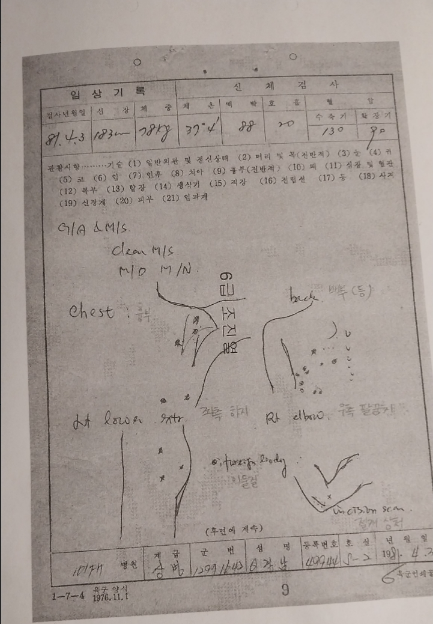 임상기록 신체검사
검사년월일 신장 체중 체온 맥박 호흡 혈압
수축기 확장기
81.4.3 183cm 78kg 37.4 88 20 130 90
관찰사항………기술 (1) 일반외관 및 정신상태 (2) 머리 및 목(전반적) (3) 눈 (4) 귀
(5) 코 (6) 입 (7) 인후 (8) 치아 (9) 흉부(전반적) (10) 폐 (11) 심장 및 혈관
(12) 복부 (13) 항문 (14) 생식기 (15) 직장 (16) 전립선 (17) 등 (18) 사지
(19) 신경계 (20) 피부 (21) 임파계
G/A & M/S.
clean M/S
M/D M/N
6급 조진엽
Chest : 흉부
back 배부 (등)
Lt lower extr 좌측 하지
Rt elbow 우측 팔꿈치
foreign body
이물질
incision scar
절개 상흔
(후면에 계속)
병원 계급 군번 성명 등록번호 호실 년월일
1-7-4 육군 양식
1976.11.1
9